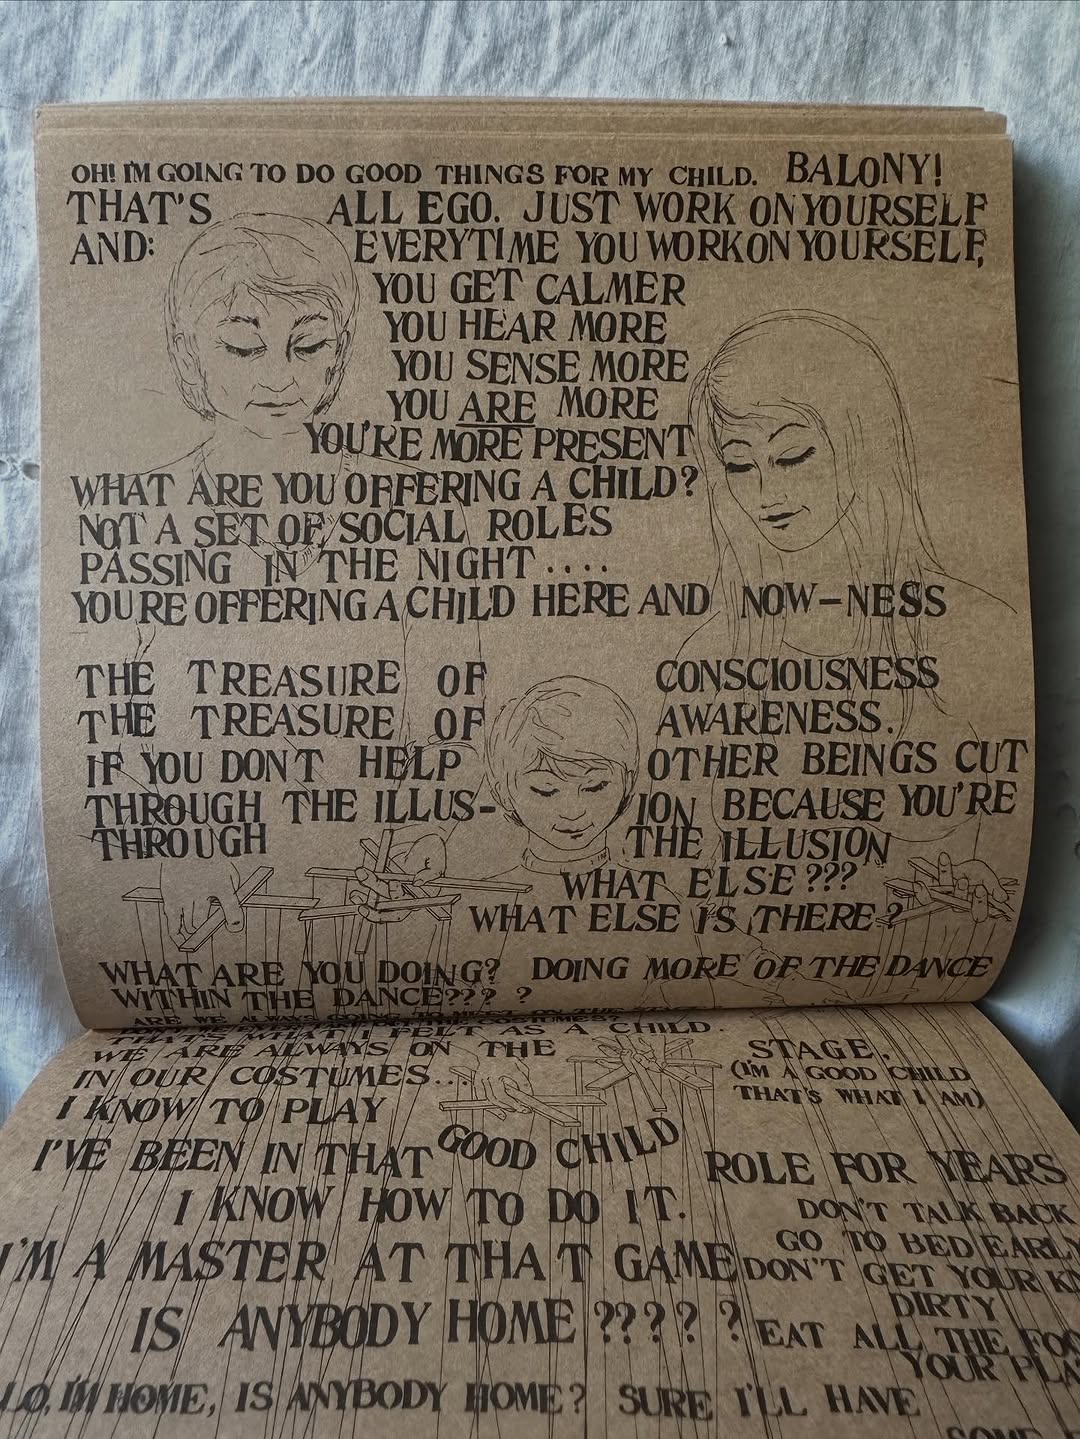 OH! I'M GOING TO DO GOOD THINGS FOR MY CHILD. BALONY!
THAT'S ALL EGO. JUST WORK ON YOURSELF
AND: EVERYTIME YOU WORK ON YOURSELF,
YOU GET CALMER
YOU HEAR MORE
YOU SENSE MORE
YOU ARE MORE
YOU'RE MORE PRESENT
WHAT ARE YOU OFFERING A CHILD?
NOT A SET OF SOCIAL ROLES
PASSING IN THE NIGHT....
YOU'RE OFFERING A CHILD HERE AND NOW-NESS
THE TREASURE OF CONSCIOUSNESS
THE TREASURE OF AWARENESS.
IF YOU DON'T HELP OTHER BEINGS CUT
THROUGH THE ILLUS-ION BECAUSE YOU'RE
THROUGH THE ILLUSION
WHAT ELSE???
WHAT ELSE IS THERE?
WHAT ARE YOU DOING? DOING MORE OF THE DANCE
WITHIN THE DANCE????
ARE WE ALWAYS GOING TO MEET ON THE
THAT'S WHAT I FELT AS A CHILD.
WE ARE ALWAYS ON THE STAGE.
IN OUR COSTUMES... (I'M A GOOD CHILD
I KNOW TO PLAY THAT'S WHAT I AM)
GOOD CHILD
I'VE BEEN IN THAT ROLE FOR YEARS
I KNOW HOW TO DO IT. DON'T TALK BACK
GO TO BED EARLY
I'M A MASTER AT THAT GAME DON'T GET YOUR
DIRTY
IS ANYBODY HOME????? EAT ALL THE
YOUR
I'M HOME, IS ANYBODY HOME? SURE I'LL HAVE
SOME